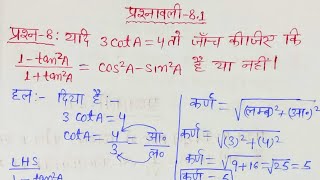 प्रश्नावली-8.1
प्रश्न-8: यदि 3cotA=4 तो जाँच कीजिए कि
1-tan²A/1+tan²A = cos²A-sin²A है या नहीं।
हल:- दिया है:-
3cotA=4
cotA=4/3=आ०/ल०
LHS
1-tan²A
कर्ण=√(लम्ब)²+(आ०)²
कर्ण=√(3)²+(4)²
कर्ण=√9+16=√25=5
कर्ण=5